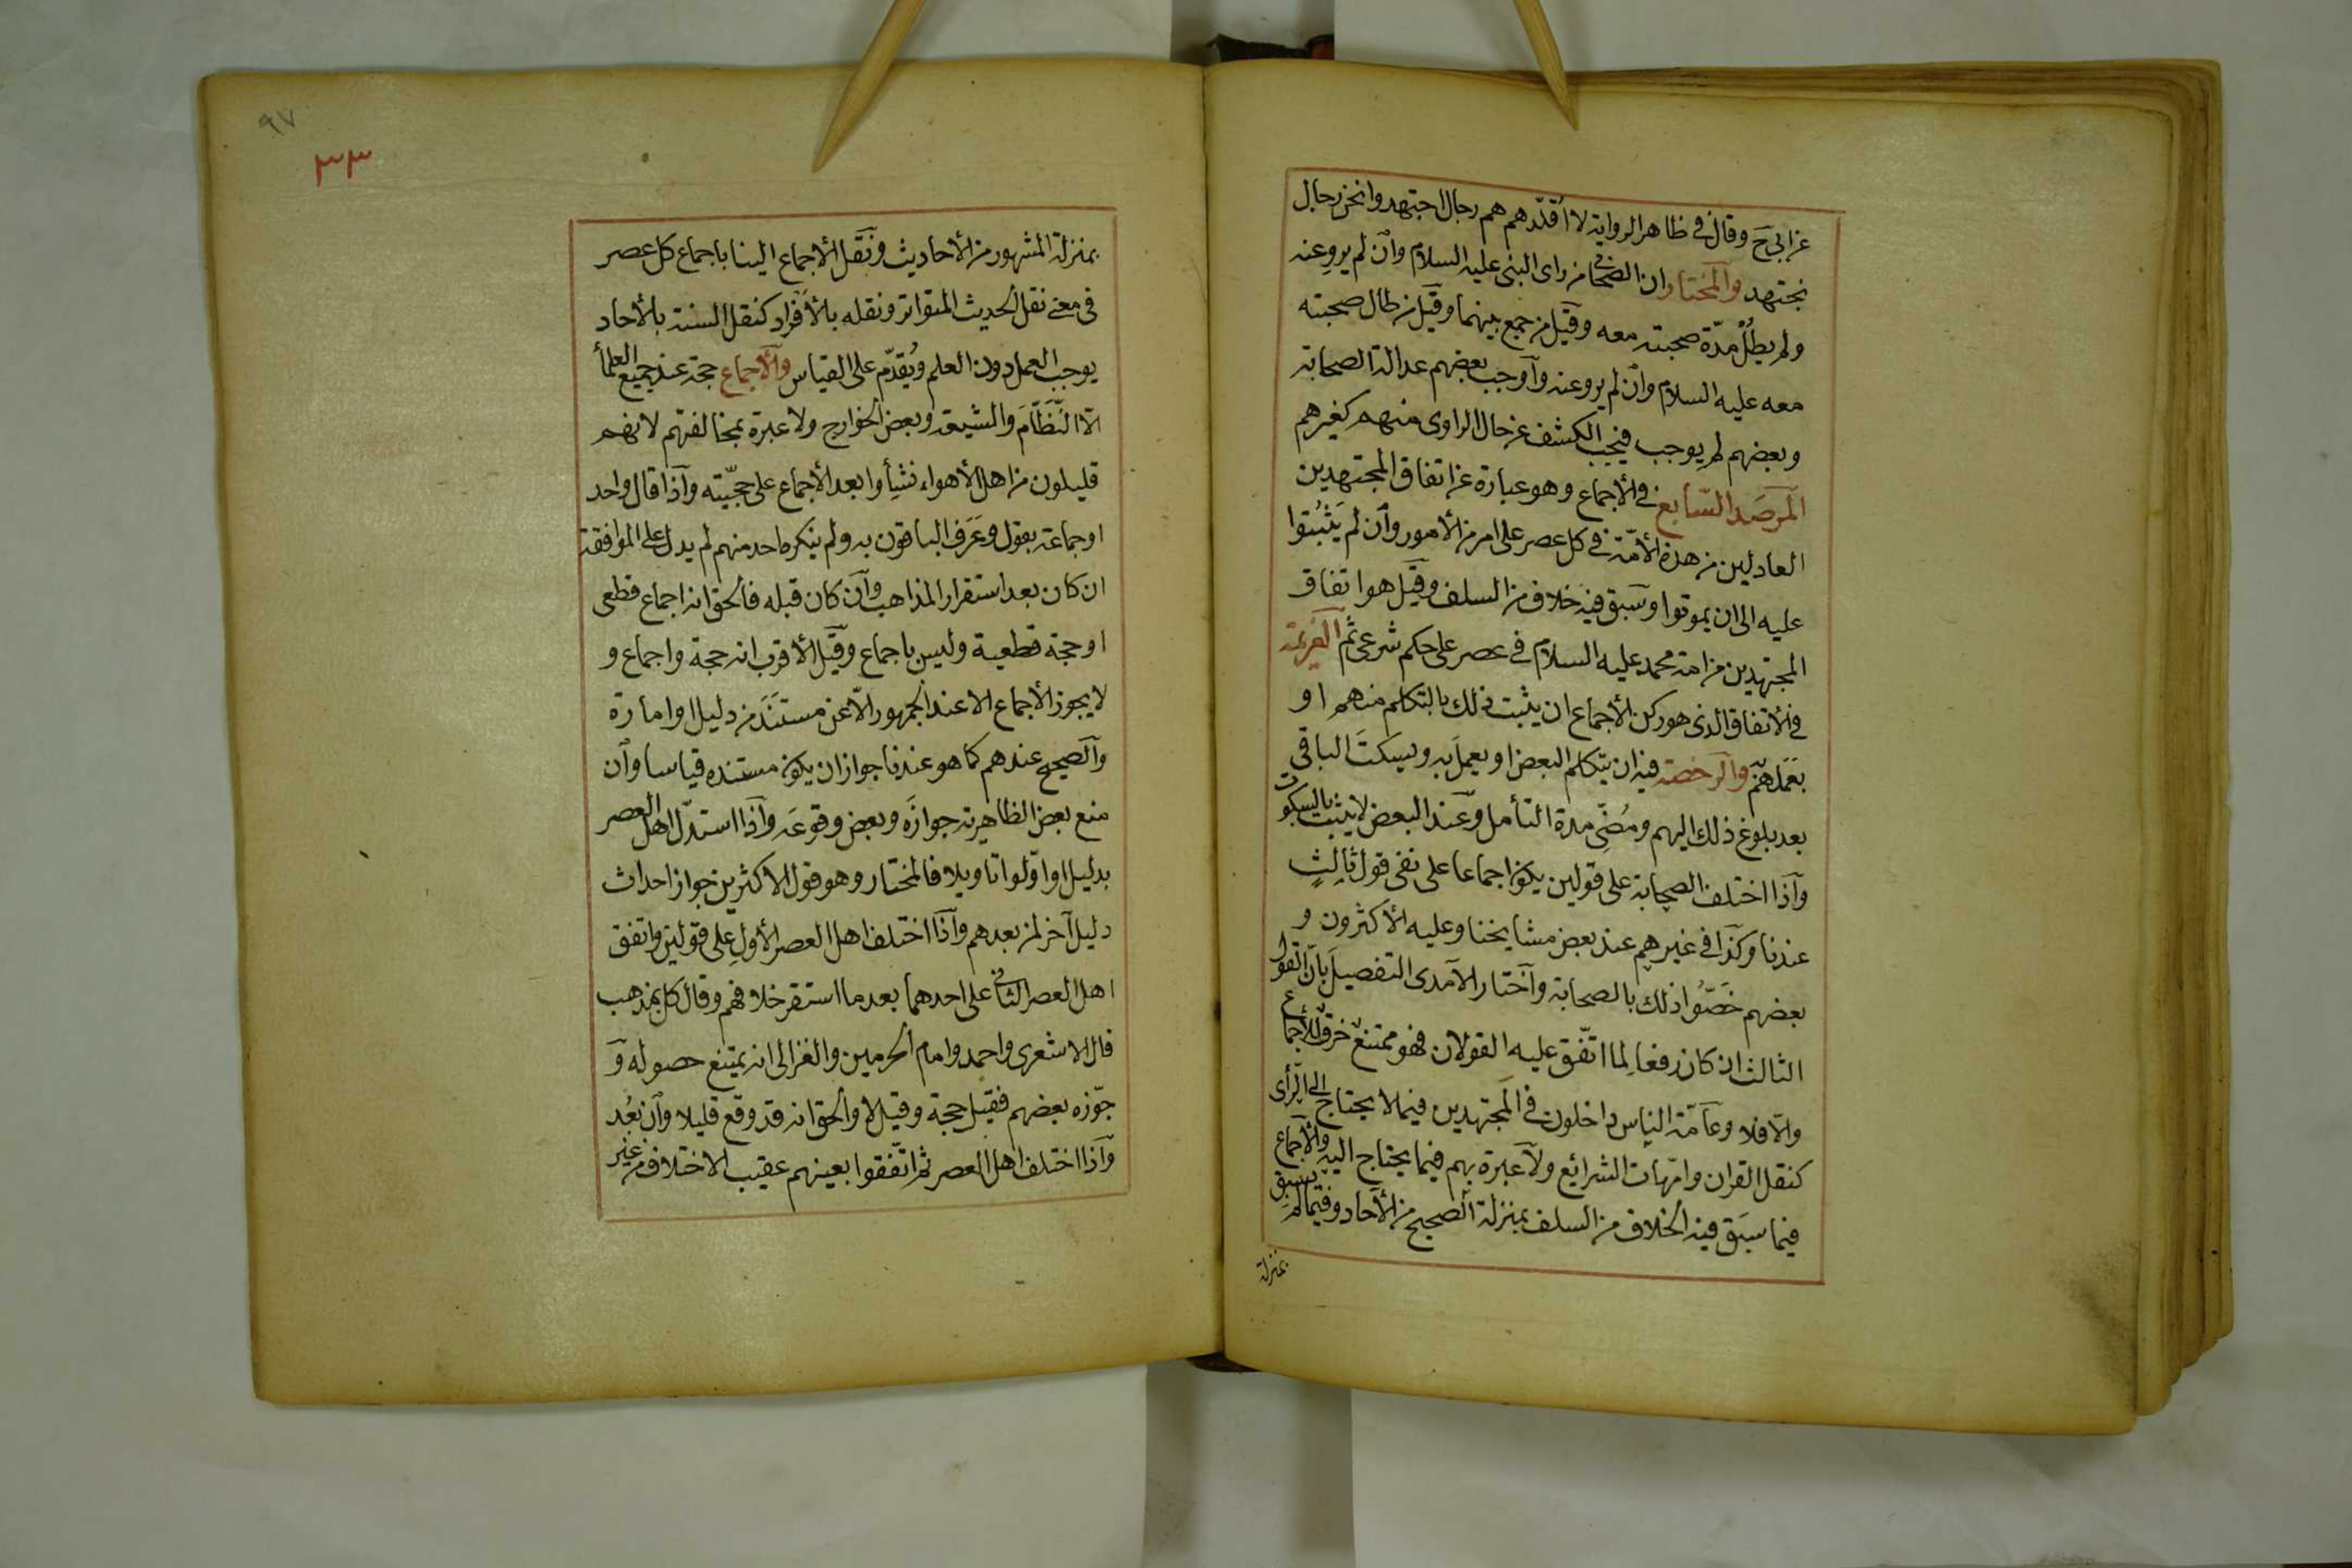 عن ابى ح وقال في ظاهر الرواية لا أقلّدهم هم رجال اجتهدوا ونحن رجال
نجتهد والمختار ان الصحابى من راى النبى عليه السلام وان لم يرو عنه
ولم يطل مدّة صحبته معه وقيل من جمع بينهما وقيل من طال صحبته
معه عليه السلام وان لم يرو عنه وأوجب بعضهم عدالة الصحابة
وبعضهم لم يوجب فيجب الكشف عن حال الراوى منهم كغيرهم
المرصد السّابع في الأجماع وهو عبارة عن اتفاق المجتهدين
العادلين من هذه الأمّة في كل عصر على امر من الأمور وان لم يثبتوا
عليه الى ان يموتوا وسبق فيه خلاف من السلف وقيل هو اتفاق
المجتهدين من امة محمد عليه السلام في عصر على حكم شرعى ثم العزيمة
في الأتفاق الذى هو ركن الأجماع ان يثبت ذلك بالتكلم منهم او
بعملهم والرخصة فيه ان يتكلم البعض او يعمل به ويسكت الباقى
بعد بلوغ ذلك اليهم ومضى مدة التأمل وعند البعض لا يثبت بالسكوت
وأذا اختلف الصحابة على قولين يكون اجماعا على نفى قول ثالث
عندنا وكذا في غيرهم عند بعض مشايخنا وعليه الأكثرون و
بعضهم خصّوا ذلك بالصحابة وأختار الآمدى التفصيل بان القول
الثالث ان كان رفعا لما اتّفق عليه القولان فهو ممتنع خرق للأجماع
والّا فلا وعامّة الناس داخلون في المجتهدين فيما لا يحتاج الى الرأى
كنقل القران وامّهات الشرائع ولا عبرة بهم فيما يحتاج اليه والأجماع
فيما سبق فيه الخلاف من السلف بمنزلة الصحيح من الأحاد وفيما لم يسبق
بمنزلة
٩٧
٣٣
بمنزلة المشهور من الأحاديث ونقل الأجماع الينا باجماع كل عصر
فى معنى نقل الحديث المتواتر ونقله بالأفراد كنقل السنة بالأحاد
يوجب العمل دون العلم ويُقدّم على القياس والأجماع حجة عند جميع العلمأ
الّا النّظّام والشيعة وبعض الخوارج ولا عبرة بمخالفتهم لانهم
قليلون من اهل الأهواء نشأوا بعد الأجماع على حجّيته وأذا قال واحد
او جماعة بقول وعرف الباقون به ولم ينكره احد منهم لم يدل على الموافقة
ان كان بعد استقرار المذاهب وان كان قبله فالحق انه اجماع قطعى
او حجة قطعية وليس باجماع وقيل الأقرب انه حجة واجماع و
لا يجوز الأجماع الا عند الجمهور الّا عن مستند من دليل او امارة
والصحيح عندهم كما هو عندنا جواز ان يكون مستنده قياسا وان
منع بعض الظاهرية جوازه وبعض وقوعه وأذا استدلّ اهل العصر
بدليل او اوّلوا تاويلا فالمختار وهو قول الاكثرين جواز احداث
دليل آخر لمن بعدهم وأذا اختلف اهل العصر الأول على قولين واتفق
اهل العصر الثانى على احدهما بعد ما استقر خلافهم وقال كل بمذهب
قال الاشعرى واحمد وامام الحرمين والغزالى انه يمتنع حصوله و
جوّزه بعضهم فقيل حجة وقيل لا والحق انه قد وقع قليلا وان بعُد
وأذا اختلف اهل العصر ثم اتّفقوا بعينهم عقيب الاختلاف من غير